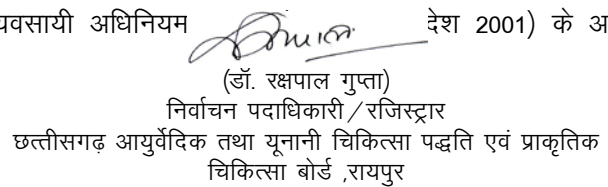 यवसायी अधिनियम देश 2001) के अ
(डॉ. रक्षपाल गुप्ता)
निर्वाचन पदाधिकारी/रजिस्ट्रार
छत्तीसगढ़ आयुर्वेदिक तथा यूनानी चिकित्सा पद्धति एवं प्राकृतिक
चिकित्सा बोर्ड ,रायपुर